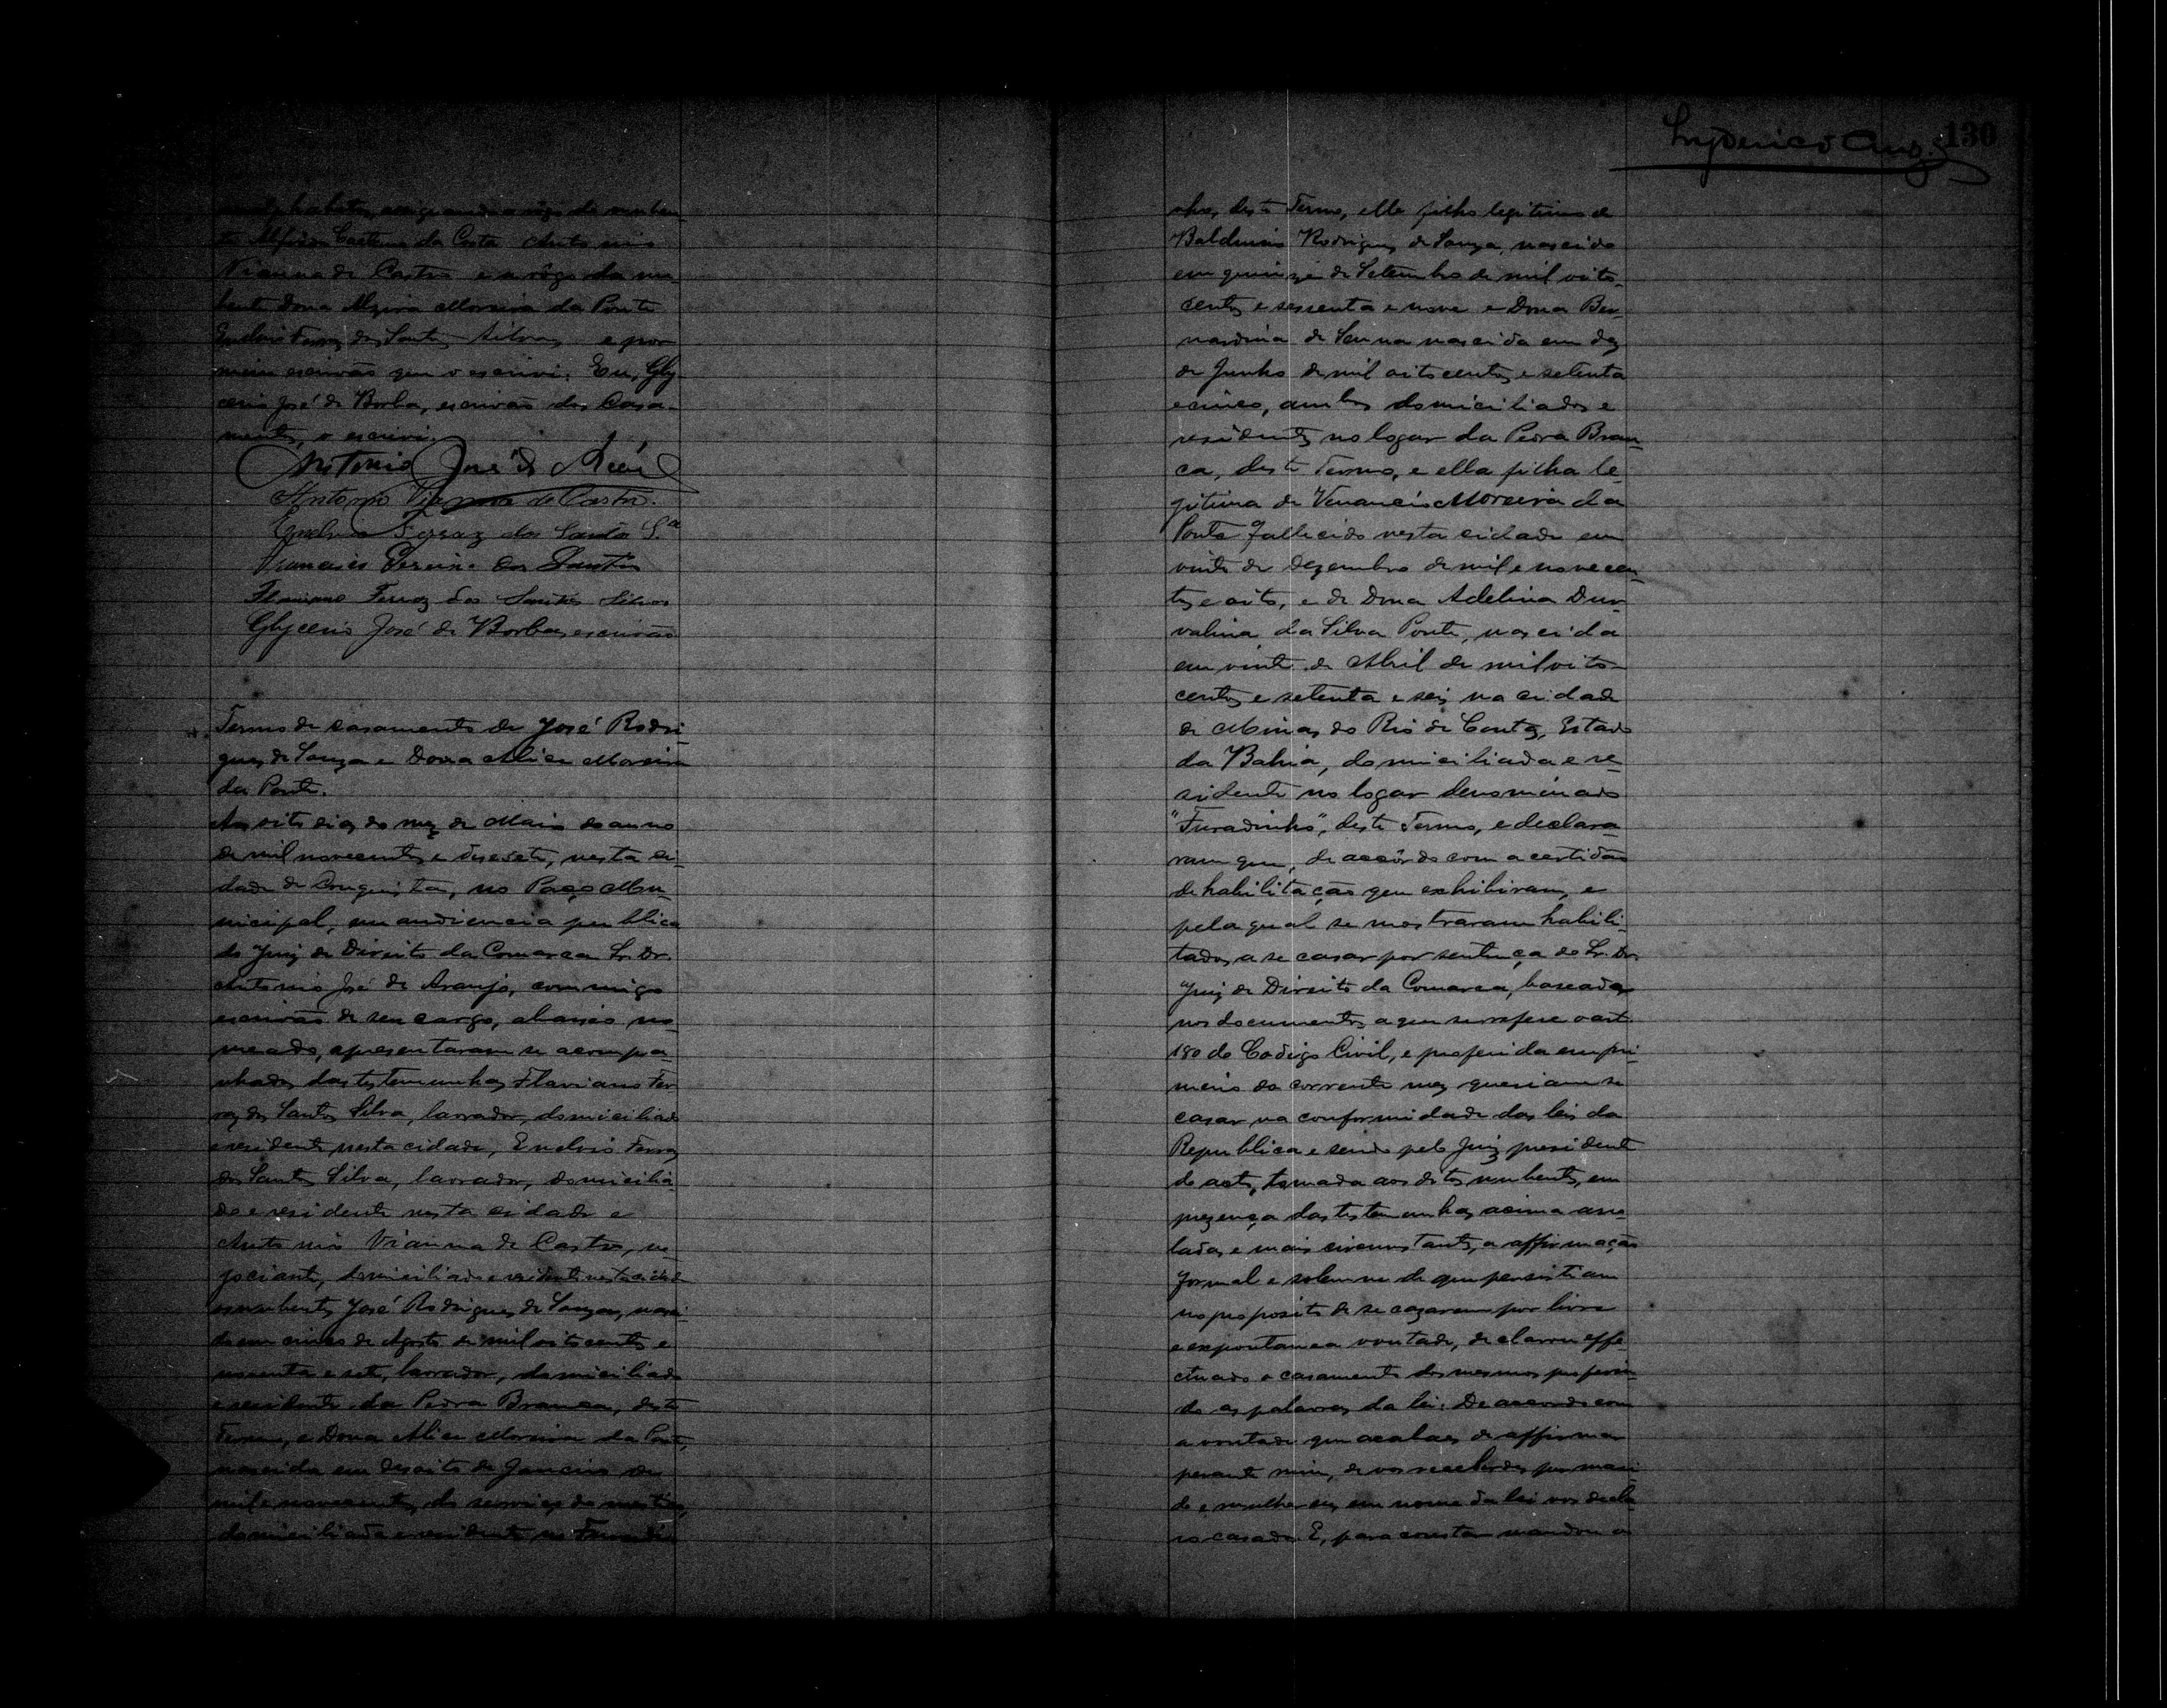 analphabetos, assignando a rogo do nuben
te Alfredo Caetano da Costa Antonio
Vianna de Castro e a rôgo da nu-
bente Dona Alzira Moreira da Ponte
Ferraz dos Santos Silva, e por
mim escrivão que o escrevi. Eu, Gly-
cerio José de Borba, escrivão dos Casa-
mentos, o escrevi.
Antonio José de
Antonio Vianna de Castro.
Ferraz dos Santos S.ª
Francisco Pereira dos Santos
Flaviano Ferraz dos Santos Silva
Glycerio José de Borba, escrivão
Termo de casamento de José Rodri-
gues de Souza e Dona Alice Moreira
da Ponte.
Aos oito dias do mez de Maio do anno
de mil novecentos e desesete, nesta ci-
dade de Conquista, no Paço Mu-
nicipal, em audiencia publica
do Juiz de Direito da Comarca Sr. Dr.
Antonio José de Araujo, commigo
escrivão de seu cargo, abaixo no-
meado, apresentaram se acompa-
nhados das testemunhas Flaviano Fer-
raz dos Santos Silva, lavrador, domiciliado
e residente nesta cidade, Ferraz
dos Santos Silva, lavrador, domicilia-
do e residente nesta cidade e
Antonio Vianna de Castro, ne-
gociante, domiciliado e residente nesta cidade
os nubentes José Rodrigues de Souza, nasci-
do em cinco de Agosto de mil oitocentos e
noventa e sete, lavrador, domiciliado
e residente da Pedra Branca, deste
Termo, e Dona Alice Moreira da Ponte,
nascida em desoito de Janeiro de
mil e novecentos, do serviço domestico,
domiciliada e residente no Furadi-
Lyderico Cruz 130
nho, deste Termo, elle filho legitimo de
Balduino Rodrigues de Souza, nascido
em quinze de Setembro de mil oito-
centos e sessenta e nove e Dona Ber-
nardina de Senna nascida em dez
de Junho de mil oitocentos e setenta
e cinco, ambos domiciliados e
residentes no logar da Pedra Bran-
ca, deste Termo, e ella filha le-
gitima de Venancio Moreira da
Ponte fallecido nesta cidade em
vinte de Dezembro de mil e novecen-
tos e oito, e de Dona Adelina Dur-
valina da Silva Ponte, nascida
em vinte de Abril de mil oito-
centos e setenta e seis na cidade
de Minas do Rio de Contas, Estado
da Bahia, domiciliada e re-
sidente no logar denominado
"Furadinho", deste Termo, e declara-
ram que, de accôrdo com a certidão
de habilitação que exhibiram, e
pela qual se mostraram habili-
tados a se casar por sentença do Sr. Dr.
Juiz de Direito da Comarca, baseada
nos documentos a que se refere o art.
180 do Codigo Civil, e proferida em pri-
meiro do corrente mez queriam se
casar na conformidade das leis da
Republica e sendo pelo Juiz presidente
do acto, tomada aos ditos nubentes, em
prezença das testemunhas acima arro-
ladas e mais circunstantes, a affirmação
formal e solemne de que persistiam
no proposito de se cazarem por livre
e expontanea vontade, declarou effe-
ctuado o casamento dos mesmos proferin-
do as palavras da lei: De accordo com
a vontade que acabaes de affirmar
perante mim, de vos receberdes por mari-
do e mulher eu, em nome da lei vos decla-
ro casados. E, para constar mandou o